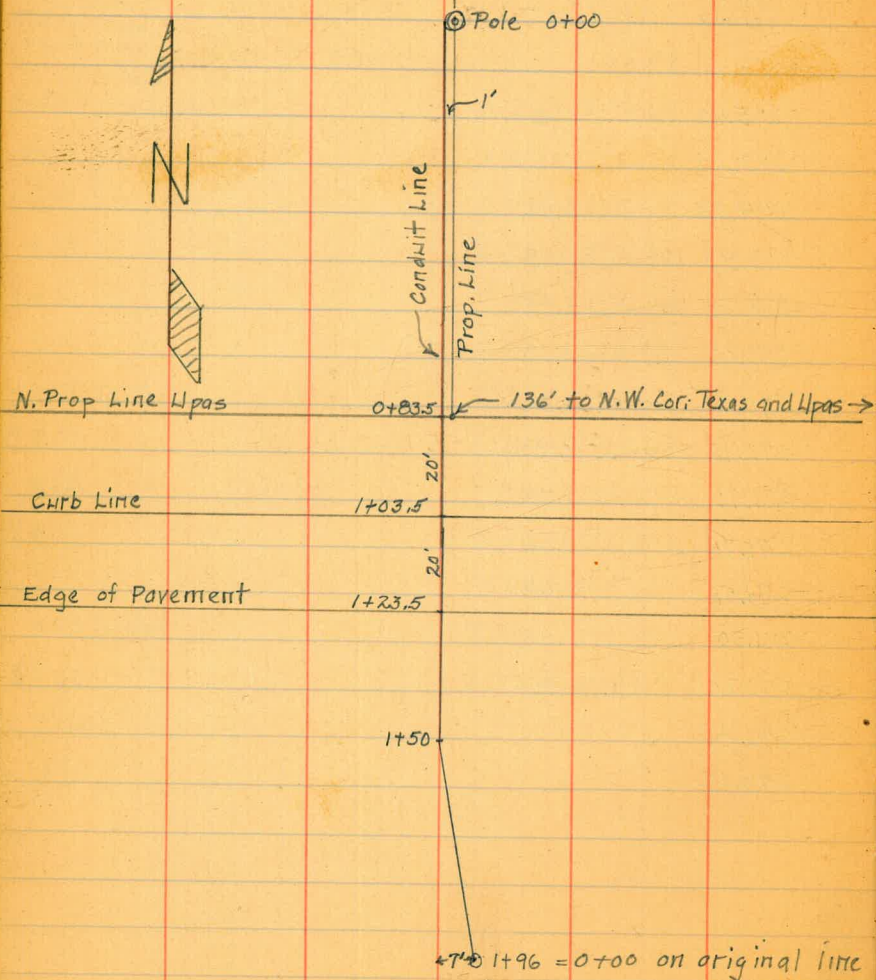 Pole 0+00
1'
N
Conduit Line
Prop. Line
N. Prop Line Upas
0+83.5
136' to N.W. Cor. Texas and Upas
20'
Curb Line
1+03.5
20'
Edge of Pavement
1+23.5
1+50
7'
1+96 = 0+00 on original line